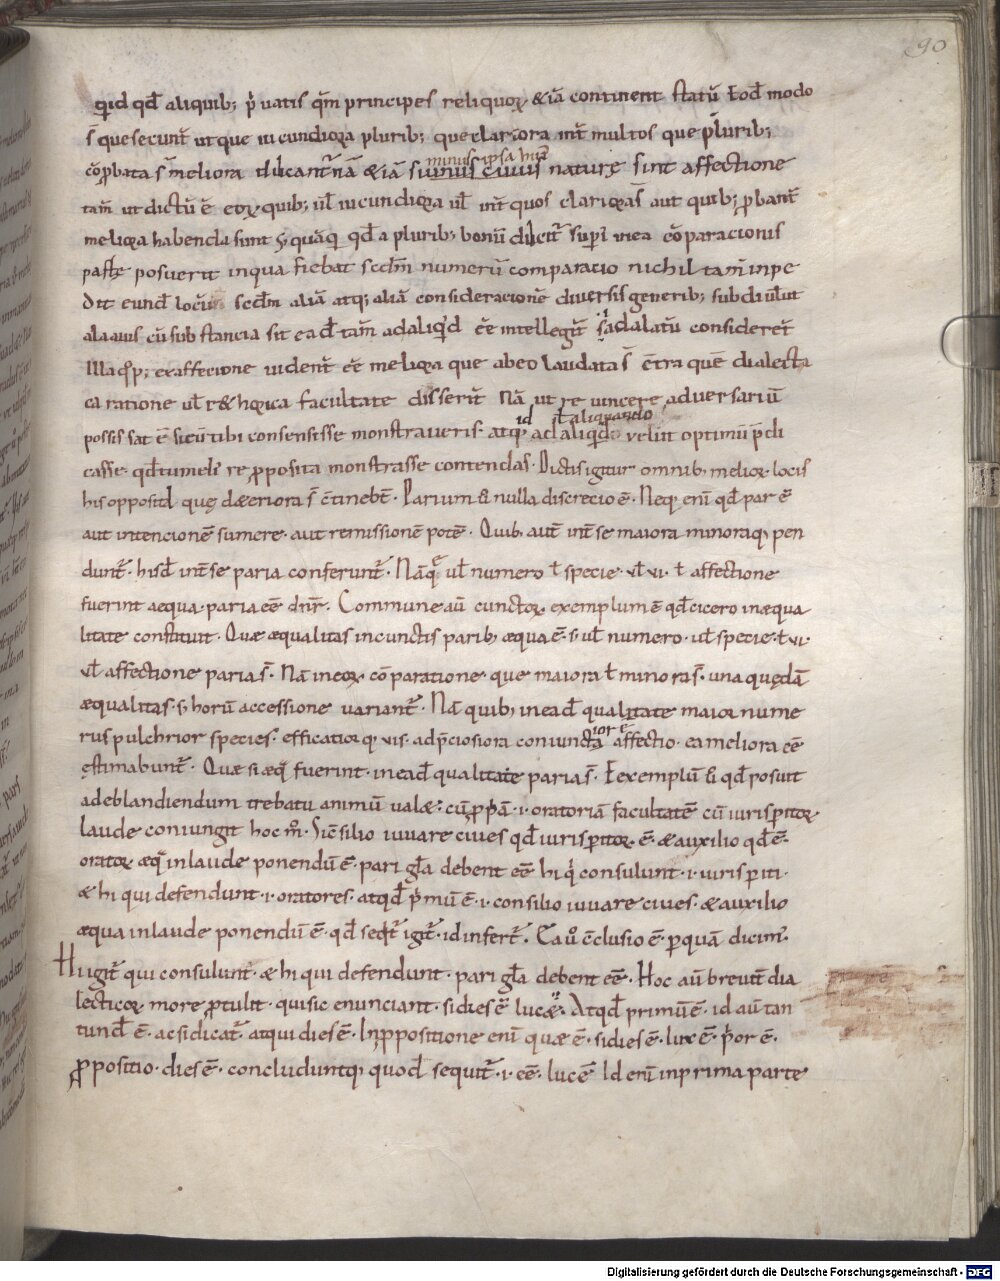 90
quid qđ aliquib; p̍uatis qm̄ principes reliquoꝝ &iā continent statū Eođ modo
s que secunt̄ utque iucundiora plurib; que clariora int̄ multos que plurib;
cōp̱bata s̄ meliora dicant̄ nā &iā siunus cuius naturę sint affectione
minus ipsa hui᷒
tam̄ ut dictū ē eoꝝ quib; ul̄ iucundiora ul̄ int̄ quos clariora s̄ aut quib; ꝓbant̄
meliora habenda sunt
posuerit inqua fiebat scđm numerū comparatio nichil tam̄ inpe
dit eunđ locū scđm aliā atq; aliā consideracionē diuersis generib; subdi
cū substancia sit eađ tam̄ adaliqid ēē intellegit̄ s̄ adalatū consideret̄
Illa exaffeccione uident̄ ēē meliora que abeo laudata s̄ c̄tra quē dialecti
ca ratione ul̄ r&horica facultate disserit Nā ut re uincere aduersariū
possis sat ē sieū tibi consensisse monstraueris atq; ad aliqid uelut optimū p̄di
id ł aliquando
casse qđ tumeli re ꝓposita monstrasse contendas. Dictis igitur omnib; melior locis
his opposita quę deteriora s̄ c̄tinebt̄. Parium ū nulla discrecio ē. Neq; enī qđ par ē
aut intencionē sumere aut remissionē potē. Quib; aut̄ int̄ se maiora minoraq; pen
dunt̄. hisđ int̄se paria conferunt̄. Nāq; ul̄ numero ł specie ul̄ ui ł affectione
fuerint aequa paria eē dnr̄. Commune aū cunctoꝝ exemplum ē qđ cicero inæqua
litate constituit. Quæ æqualitas incunctis parib; æqua ē. s̄ ul̄ numero ul̄ specie ł ui.
ul̄ affectione paria s̄. Nā ineoꝝ cōparatione que maiora ł minora s̄. una quędā
æqualitas s; horū accessione uariant̄. Nā quib; ineađ qualitate maior nume
rus pulchrior species. efficatior q; uis adp̄ciosiora coniuncta affectio ea meliora eē
ior ē
ęstimabunt̄. Quæ si æq̄ fuerint ineađ qualitate paria s̄. Eexemplū ū qđ posuit
adeblandiendum trebatii animū ualæ. cū ꝓp̍ā .i. oratoriā facultatē cū iurisꝑitoꝝ
laude coniungit hoc m̊. Si c̄silio iuuare ciues qđ iurisꝑitoꝝ ē. & auxilio qđ ē
oratoꝝ æq̄ inlaude ponendū ē. pari gła debent eē hi q̍ consulunt .i. iurisꝑiti.
& hi qui defendunt .i. oratores. atqđ p̍mū ē .i. consilio iuuare ciues & auxilio
æqua inlaude ponendū ē. qđ seqt̄ igit̄ id infert̄. Ea ů c̄clusio ē. ꝑquā dicim᷒.
Hi igit̄ qui consulunt & hi qui defendunt. pari gła debent eē. Hoc aū breuit̄ dia
lecticoꝝ more ꝓtulit. qui sic enunciant. si dies ē lucæ. Atqđ primū ē. id aū tan
tunđ ē. ac si dicat̄ atqui dies ē. Inꝓpositione enī quæ ē. si dies ē. lux ē. p̍or ē.
ꝓpositio. dies ē. concluduntq; quod sequit̄ .i. eē. lucē Id enī inprima parte
Digitalisierung gefördert durch die Deutsche Forschungsgemeinschaft - DFG